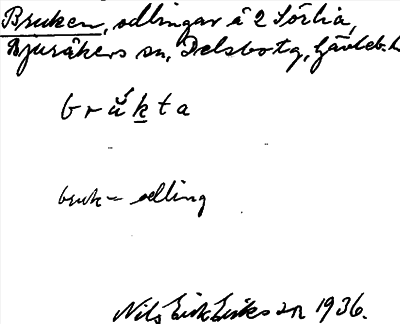 Bruken, odlingar å 2 Sörlia,
Bjuråkers sn, Delsbo tg, Gävleb. l
brŭ́kta
bruk = odling
Nils Erik Eriksson 1936.